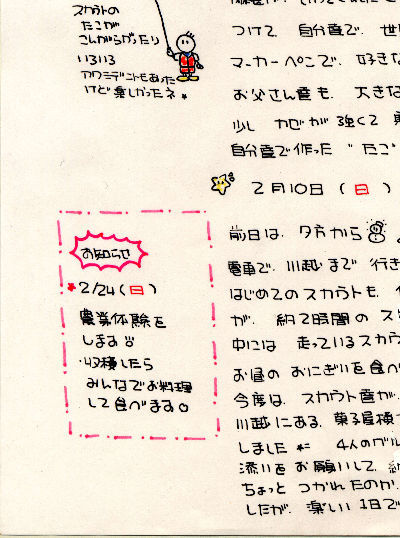 スカウトの
たこが
こんがらがったり
いろいろ
アクシデントもあった
けど楽しかったネ。
つけて、自分達で、世
マーカーペンで、好きな
お父さん達も、大きな
少し カゼが 強くて
自分達で作った "たこ"
2月10日(日)
お知らせ
2/24(日)
農業体験を
します
・収穫したら
みんなでお料理
して食べます。
前日は、夕方から
電車で、川越まで 行き
はじめてのスカウトも、
が、約2時間の
中には 走っているスカウ
お昼の おにぎりを食べ
今度は、スカウト達が、
川越にある、菓子屋横
しました 4人のグル
添いを お願いして、
ちょっと つかれたのか、
したが、楽しい 1日で